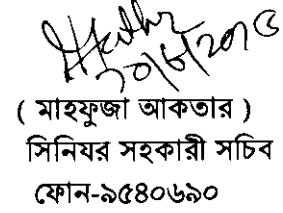 ২০/৮/২০১৫
( মাহফুজা আকতার )
সিনিযর সহকারী সচিব
ফোন-৯৫৪০৬৯০